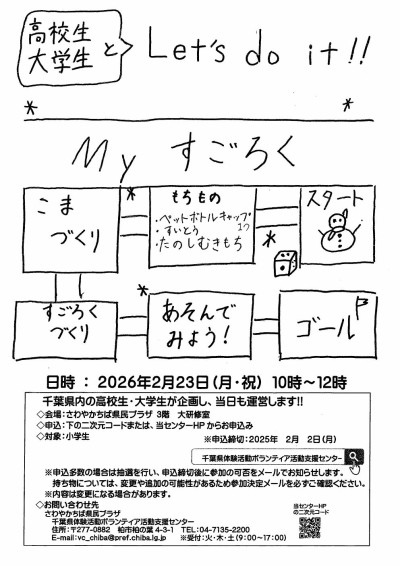 高校生
大学生
と
Let's do it!!
My すごろく
スタート
もちもの
・ペットボトルキャップ
1つ
・すいとう
・たのしむきもち
こま
づくり
すごろく
づくり
あそんで
みよう!
ゴール
日時 : 2026年2月23日(月・祝) 10時~12時
千葉県内の高校生・大学生が企画し、当日も運営します!!
◇会場:さわやかちば県民プラザ 3階 大研修室
◇申込:下の二次元コードまたは、当センターHPからお申込み
◇対象:小学生
※申込締切:2025年 2月 2日(月)
千葉県体験活動ボランティア活動支援センター
※申込多数の場合は抽選を行い、申込締切後に参加の可否をメールでお知らせします。
持ち物については、変更や追加の可能性があるため参加決定メールを必ずご確認ください。
※内容は変更になる場合があります。
◇お問い合わせ先
さわやかちば県民プラザ
千葉県体験活動ボランティア活動支援センター
住所:〒277-0882 柏市柏の葉 4-3-1 TEL:04-7135-2200
E-mail:vc_chiba@pref.chiba.lg.jp ※受付:火・木・土(9:00~17:00)
当センターHP
の二次元コード